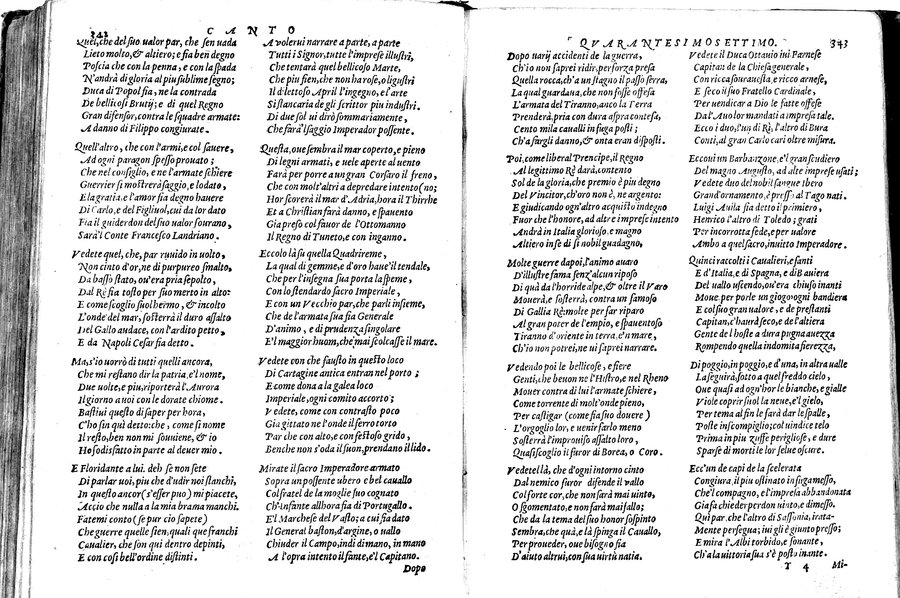 342 CANTO
Quel, che del suo ualor par, che sen uada
Lieto molto, & altiero; e sia ben degno
Poscia che con la penna, e con la spada
N'andrà di gloria al piu sublime segno;
Duca di Popol fia, ne la contrada
De bellicosi Brutij; e di quel Regno
Gran difensor, contra le squadre armate
A danno di Filippo congiurate.
Quell'altro, che con l'armi, e col sauere,
Ad ogni paragon spesso prouato;
Che nel consiglio, e ne l'armate schiere
Guerrier si mostrerà saggio, e lodato,
E la gratia, e l'amor fia degno hauere
Di Carlo, e del Figliuol, cui da lor dato
Fia il guiderdon del suo ualor sourano,
Sarà'l Conte Francesco Landriano.
Vedete quel, che, par ruuido in uolto,
Non cinto d'or, ne di purpureo smalto,
Da basso stato, ou'era pria sepolto,
Dal Rè fia tosto per suo merto in alto:
E come scoglio suol hermo, & incolto
L'onde del mar, sosterrà il duro assalto
Del Gallo audace, con l'ardito petto,
E da Napoli Cesar fia detto.
Ma, s'io uorrò di tutti quelli ancora,
Che mi restano dir la patria, e'l nome,
Due uolte, e piu, riporterà l'Aurora
Il giorno a uoi con le dorate chiome.
Bastiui questo di saper per hora,
C'ho sin quà detto: che, come si nome
Il resto, ben non mi souuiene, & io
Ho sodisfatto in parte al deuer mio.
E Floridante a lui. deh se non sete
Di parlar uoi, piu che d'udir noi stanchi,
In questo ancor (s'esser puo) mi piacete,
Acciò che nulla a la mia brama manchi.
Fatemi conto (se pur ciò sapete)
Che guerre quelle sien, quali que franchi
Caualier, che son qui dentro depinti,
E con cosi bell'ordine distinti.
A volerui narrare a parte, a parte
Tutti i Signor, tutte l'imprese illustri,
Che tentarà quel bellicoso Marte,
Che piu sien, che non ha rose, o ligustri
Il dilettoso April l'ingegno, e l'arte
Si stancaria de gli scrittor piu industri.
Di due sol ui dirò sommariamente,
Che farà'l saggio Imperador possente.
Questa, oue sembra il mar coperto, e pieno
Di legni armati, e uele aperte al uento
Farà per porre a un gran Corsaro il freno,
Che con molt'altri a depredare intento (no;
Hor scorrerà il mar d'Adria, hora il Thirrhe
Et a Christian farà danno, e spauento
Gia preso col fauor de l'Ottomanno
Il Regno di Tuneto, e con inganno.
Eccolo là su quella Quadrireme,
La qual di gemme, e d'oro haue il tendale,
Che per l'insegna sua porta la speme,
Con lo stendardo sacro Imperiale,
E con un Vecchio par, che parli insieme,
Che de l'armata sua fia Generale
D'animo, e di prudenza singolare
E'l maggior huom, che mai solcasse il mare.
Vedete con che fausto in questo loco
Di Cartagine antica entran nel porto;
E come dona a la galea loco
Imperiale, ogni comito accorto;
Vedete, come con contrasto poco
Gia gittato ne l'onde il ferro torto
Par che con alto, e con festoso grido,
Benche non s'oda il suon, prendano il lido.
Mirate il sacro Imperadore armato
Sopra un possente ubero e bel cauallo
Col fratel de la moglie suo cognato
Ch'infante all'hora fia di Portugallo.
E'l Marchese del Vasto; a cui fia dato
Il General baston, d'argine, o uallo
Chiuder il Campo, indi di mano, in mano
A l'opra intento il fante, e'l Capitano.
Dopo
QVARANTESIMOSETTIMO. 343
Dopo uarij accidenti de la guerra,
Ch'io non saprei ridir, per forza presa
Quella rocca, ch'a un stagno il passo serra,
La qual guardaua, che non fosse offesa
L'armata del Tiranno, anco la Terra
Prenderà, pria con dura aspra contesa,
Cento mila caualli in fuga posti;
Ch'a fargli danno, & onta eran disposti.
Poi, come liberal Prencipe, il Regno
Al legittimo Rè darà, contento
Sol de la gloria, che premio è piu degno
Del Vincitor, ch'oro non è, ne argento:
E giudicando ogn'altro acquisto indegno
Fuor che l'honore, ad altre imprese intento
Andrà in Italia glorioso, e magno
Altiero in se di si nobil guadagno,
Molte guerre dapoi, l'animo auaro
D'illustre fama senz'alcun riposo
Di quà da l'horride alpe, & oltre il Varo
Mouerà, e sosterrà, contra un famoso
Di Gallia Rè: molte per far riparo
Al gran poter de l'empio, e spauentoso
Tiranno d'oriente in terra, e'n mare,
Ch'io non potrei, ne ui saprei narrare.
Vedendo poi le bellicose, e fiere
Genti, che beuon ne l'Histro, e nel Rheno
Mouer contra di lui l'armate schiere,
Come torrente di molt'onde pieno,
Per castigar (come sia suo douere)
L'orgoglio lor, e uenir nel lor meno
Sosterrà l'improuiso assalto loro,
Quasi scoglio il furor di Borea, o Coro.
Vedetel là, che d'ogni intorno cinto
Dal nemico furor difende il uallo
Col forte cor, che non sarà mai uinto,
O sgomentato, e non farà mai fallo;
Che da la tema del suo honor sospinto
Sembra, che quà, e là spinga il Cauallo,
Per proueder, oue bisogno sia
D'aiuto altrui, con sua uirtù natia.
Vedete il Duca Ottauio iui Farnese
Capitan de la Chiesa generale,
Con ricca sourauesta, e ricco arnese,
E seco il suo Fratello Cardinale,
Per uendicar a Dio le fatte offese
Dal l'Auolor mandati a impresa tale.
Ecco i duo, l'un di Rè, l'altro di Bura
Conti, al gran Carlo cari oltre misura.
Eccoui un Barbanzone, e'l gran scudiero
Del magno Augusto, ad alte imprese usati;
Vedete duo del nobil sangue Ibero
Grand'ornamento, e presso al Tago nati.
Luigi Auila sia detto il primiero,
Henrico l'altro di Toledo; grati
Per incorrotta fede, e per ualore
Ambo a quel sacro, inuitto Imperadore.
Quinci raccolti i Caualieri, e fanti
E d'Italia, e di Spagna, e di Bauiera
Del uallo uscendo, ou'era chiusi inanti
Moue per porle un giogo ogni bandiera
E col suo gran ualore, e de prestanti
Capitan, c'haurà seco, e de l'altiera
Gente del hoste a dura pugna auezza
Rompendo quella indomita fierezza,
Di poggio, in poggio, e d'una, in altra ualle
La seguirà, sotto a quel freddo cielo,
Oue quasi ad ogn'hor le bianche, e gialle
Viole coprir suol la neue, e'l gielo,
Per tema al fin le farà dar le spalle,
Poste in scompiglio; col uindice telo
Prima in piu zuffe perigliose, e dure
Sparse di morti le lor selue oscure.
Ecc'un de capi de la scelerata
Congiura, il piu ostinato in fuga messo,
Che'l compagno, e l'impresa abbandonata
Gia fa chieder perdon uinto, e dimesso.
Qui par, che l'altro di Sassonia, irata-
Mente persegua; iui gli è giunto presso;
E mira l'Albi torbido, e sonante,
Ch'a la uittoria sua s'è posto inante.
T 4 Mi-